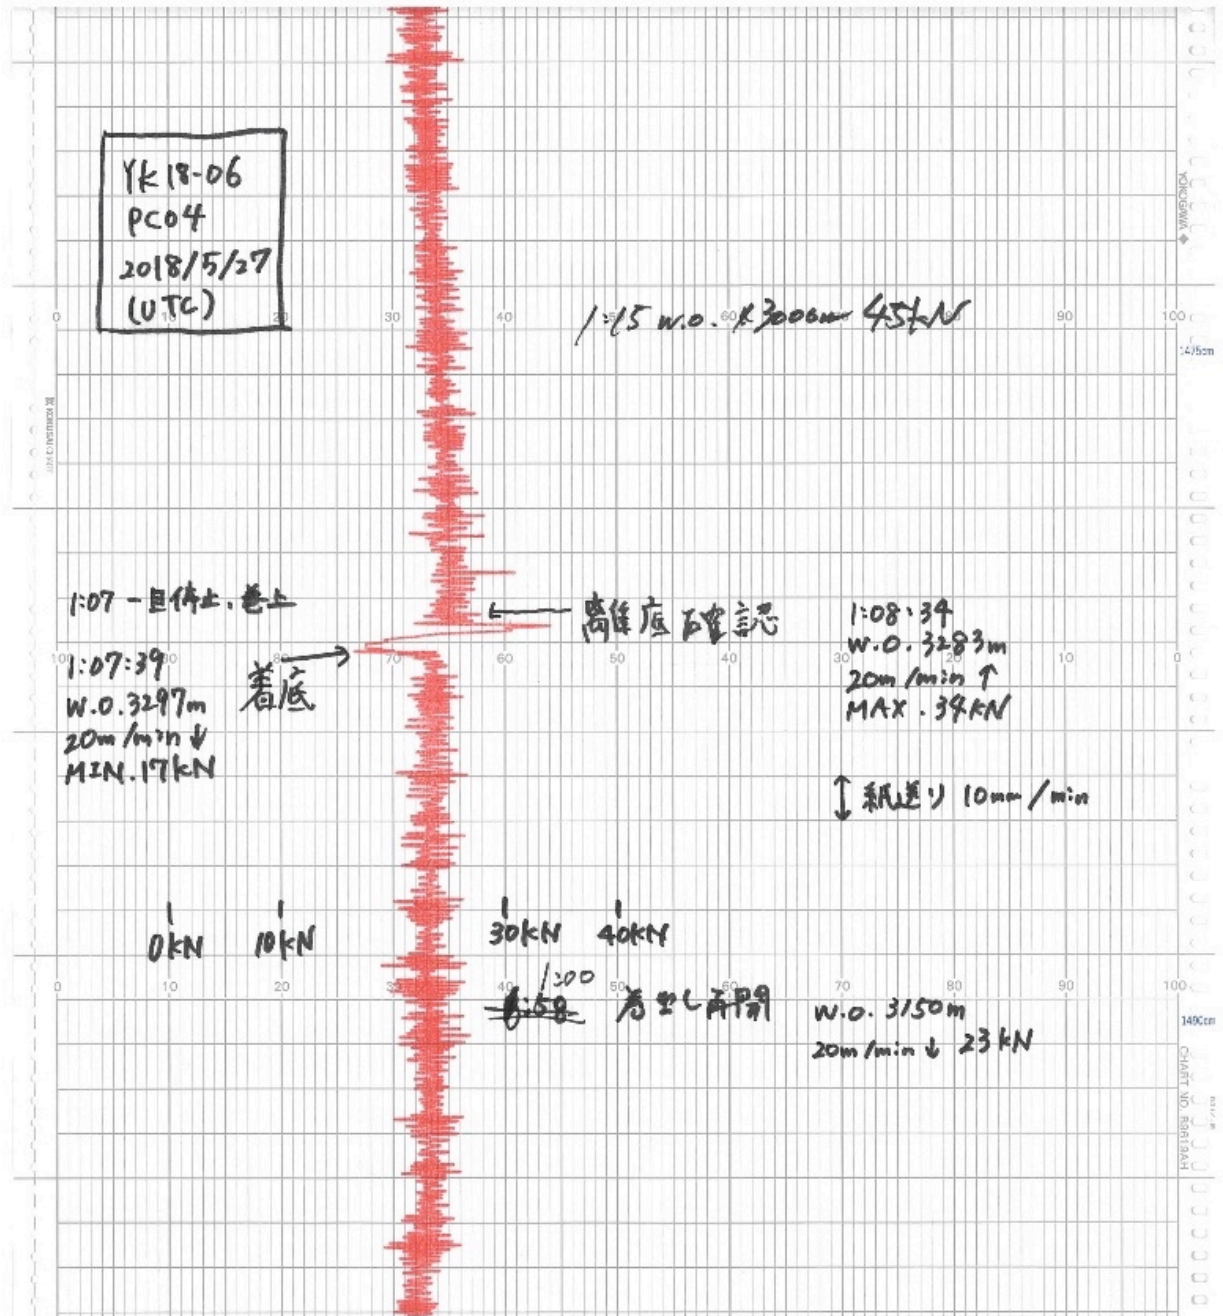 YK18-06
PC04
2018/5/27
(UTC)
0 20 30 40 60 80 90 100
1:15 w.o. 3000m 45kN
YOKOGAWA ◆
1475cm
1:07 一旦停止、巻上
離底確認
1:08:34
W.O. 3283m
20m/min ↑
MAX. 34kN
100 70 60 50 40 30 20 10 0
1:07:39
W.O. 3297m
20m/min ↓
MIN. 17kN
着底
紙送り 10mm/min
0kN 10kN 30kN 40kN
0 10 20 30 40 50 60 70 80 90 100
1:00
巻出し再開
W.O. 3150m
20m/min ↓ 23kN
1490cm
CHART NO.